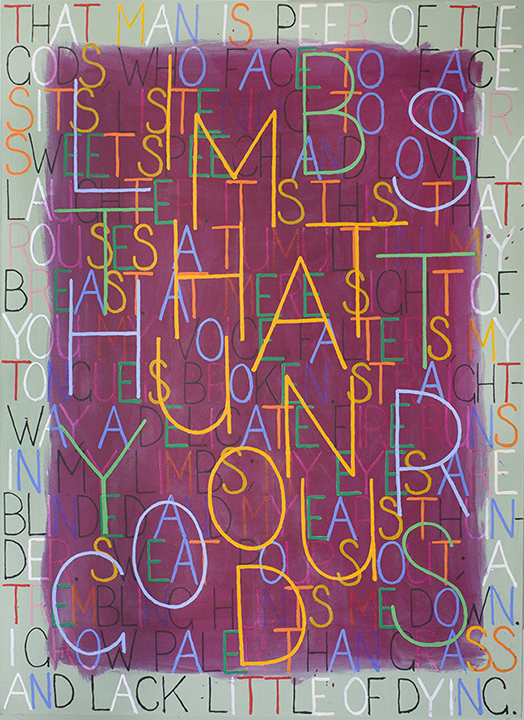 THAT MAN IS PEER OF THE
GODS WHO FACE TO FACE
SITS LISTENING TO YOUR
SWEET SPEECH AND LOVELY
LAUGHTER IT IS THIS THAT
ROUSES A TUMULT IN MY
BREAST AT MERE SIGHT OF
YOU MY VOICE FALTERS MY
TONGUE IS BROKEN. STRAIGHT-
WAY A DELICATE FIRE RUNS
IN MY LIMBS. MY EYES ARE
BLINDED AND MY EARS THUN-
DER. SWEAT POURS OUT. A
TREMBLING HUNTS ME DOWN.
I GROW PALER THAN GRASS
AND LACK LITTLE OF DYING.
LIMBS
THAT